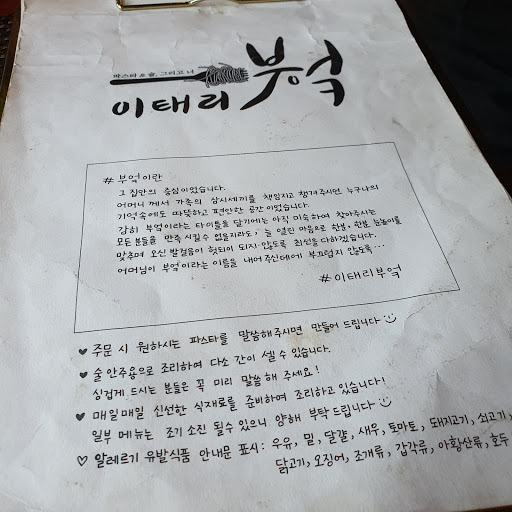 파스타 & 술, 그리고 너
이태리 부엌
# 부엌이란
그 집안의 중심이었습니다.
어머니께서 가족의 삼시세끼를 책임지고 챙겨주시던 누구나의
기억속에도 따뜻하고 편안한 공간이었습니다.
감히 부엌이라는 타이틀을 달기에는 아직 미숙하여 찾아주시는
모든 분들을 만족시킬수 없을지라도, 늘 열린 마음으로 한분, 한분 눈높이를
맞추며 오신 발걸음이 헛되이 되지 않도록 최선을 다하겠습니다.
어머님이 부엌이라는 이름을 내어주신데에 부끄럽지 않도록...
# 이태리부엌
♥ 주문 시 원하시는 파스타를 말씀해주시면 만들어 드립니다
♥ 술안주용으로 조리하여 다소 간이 셀 수 있습니다.
싱겁게 드시는 분들은 꼭 미리 말씀해 주세요!
♥ 매일매일 신선한 식재료를 준비하여 조리하고 있습니다!
일부 메뉴는 조기 소진 될수 있으니 양해 부탁드립니다
♡ 알레르기 유발식품 안내문 표시 : 우유, 밀, 달걀, 새우, 토마토, 돼지고기, 쇠고기,
닭고기, 오징어, 조개류, 갑각류, 아황산류, 호두